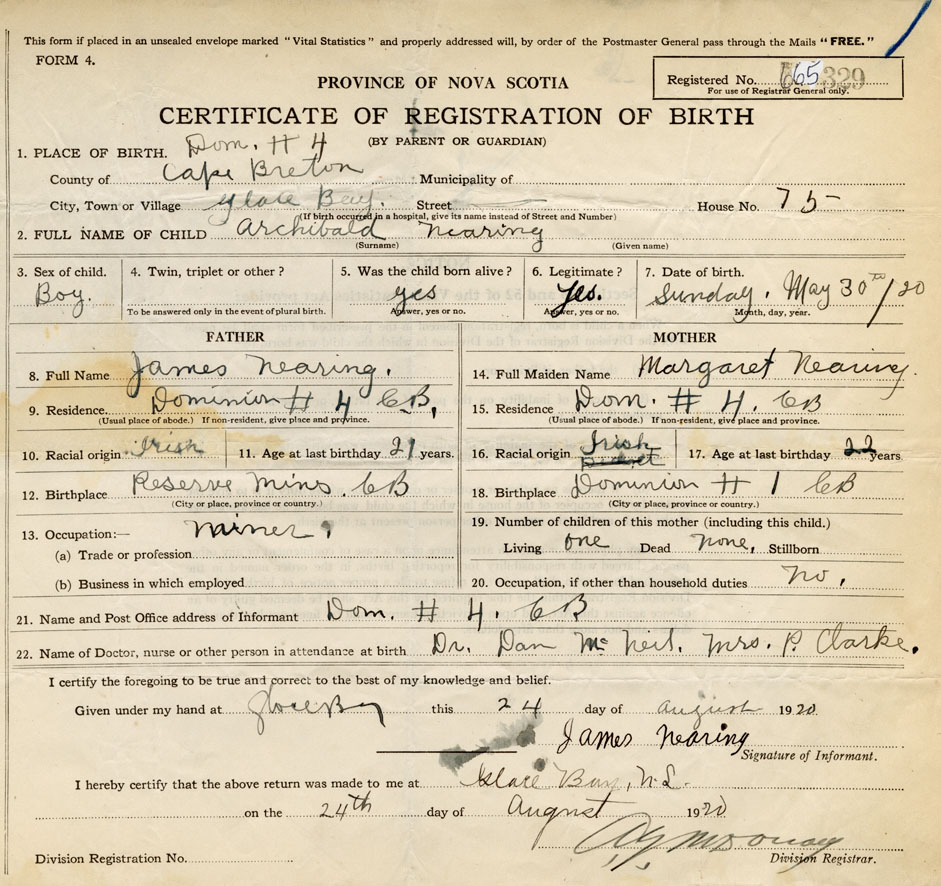 This form if placed in an unsealed envelope marked "Vital Statistics" and properly addressed will, by order of the Postmaster General pass through the Mails "FREE."
FORM 4.
PROVINCE OF NOVA SCOTIA
Registered No. 65 329
For use of Registrar General only.
CERTIFICATE OF REGISTRATION OF BIRTH
(BY PARENT OR GUARDIAN)
1. PLACE OF BIRTH. Dom. # 4
County of Cape Breton Municipality of
City, Town or Village Glace Bay. Street House No. 75
(If birth occurred in a hospital, give its name instead of Street and Number)
2. FULL NAME OF CHILD Archibald Nearing
(Surname) (Given name)
3. Sex of child. 4. Twin, triplet or other? 5. Was the child born alive? 6. Legitimate? 7. Date of birth.
Boy. yes yes. Sunday. May 30th/20
To be answered only in the event of plural birth. Answer, yes or no. Answer, yes or no. Month, day, year.
FATHER MOTHER
8. Full Name James Nearing. 14. Full Maiden Name Margaret Nearing.
9. Residence. Dominion # 4 CB, 15. Residence Dom. # 4. CB
(Usual place of abode.) If non-resident, give place and province. (Usual place of abode.) If non-resident, give place and province.
10. Racial origin Irish 11. Age at last birthday 21 years. 16. Racial origin Irish 17. Age at last birthday 22 years
12. Birthplace Reserve Mins. CB 18. Birthplace Dominion # 1 CB
(City or place, province or country.) (City or place, province or country.)
13. Occupation:— miner. 19. Number of children of this mother (including this child.)
(a) Trade or profession Living one Dead none, Stillborn
(b) Business in which employed 20. Occupation, if other than household duties no.
21. Name and Post Office address of Informant Dom. # 4. CB
22. Name of Doctor, nurse or other person in attendance at birth Dr. Dan McNeil. Mrs. P. Clarke.
I certify the foregoing to be true and correct to the best of my knowledge and belief.
Given under my hand at Glace Bay this 24 day of August 1920
James Nearing
Signature of Informant.
I hereby certify that the above return was made to me at Glace Bay, N.S.
on the 24th day of August 1920
Division Registration No. Division Registrar.